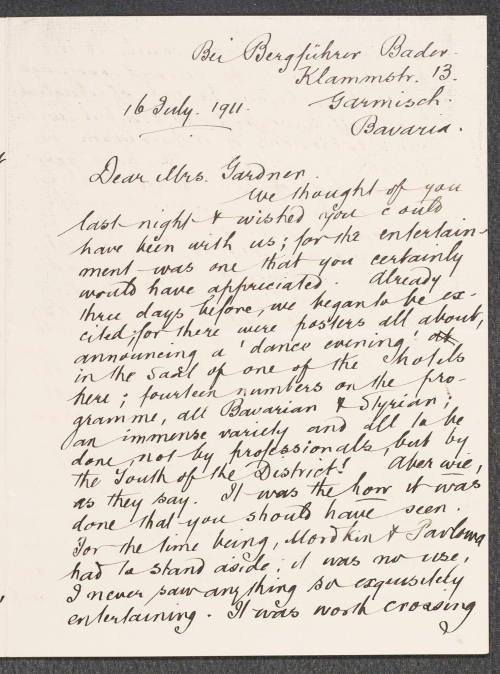 Bei Bergführer Bader.
Klammstr. 13.
16 July. 1911. Garmisch.
Bavaria.
Dear Mrs. Gardner.
We thought of you
last night & wished you could
have been with us; for the entertain-
ment was one that you certainly
would have appreciated. Already
three days before, we began to be ex-
cited; for there were posters all about,
announcing a 'dance evening' at
in the Saal of one of the hotels
here; fourteen numbers on the pro-
gramme, all Bavarian & Styrian;
an immense variety and all to be
done, not by professionals, but by
the Youth of the District! Aber wie,
as they say. It was the how it was
done that you should have seen.
For the time being, Mordkin & Pavlowa
had to stand aside; it was no use,
I never saw anything so exquisitely
entertaining. It was worth crossing